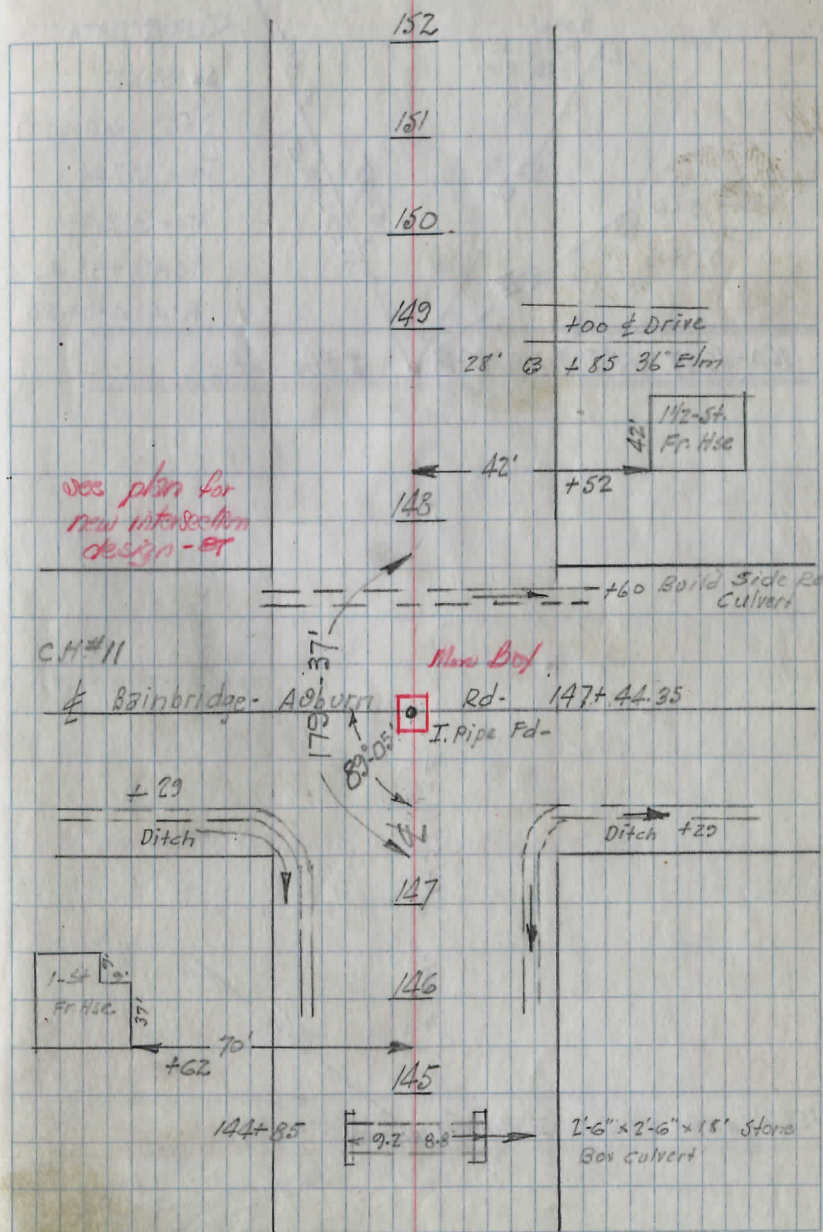 152
151
150
149
+00 ℄ Drive
28' +85 36" Elm
1 1/2-St.
Fr. Hse
42'
42'
+52
148
see plan for
new intersection
design - 
+60 Build Side Rd
Culvert
C.H.#11
Mon Box
℄ Bainbridge - Auburn Rd - 147+44.35
I. Pipe Fd-
179-37'
89°-05'
℄
+29
Ditch
Ditch +29
147
1-St
Fr. Hse.
9'
9'
37'
146
70'
+62
145
144+85
9.2 8.8
2'-6" x 2'-6" x 18' Stone
Box Culvert